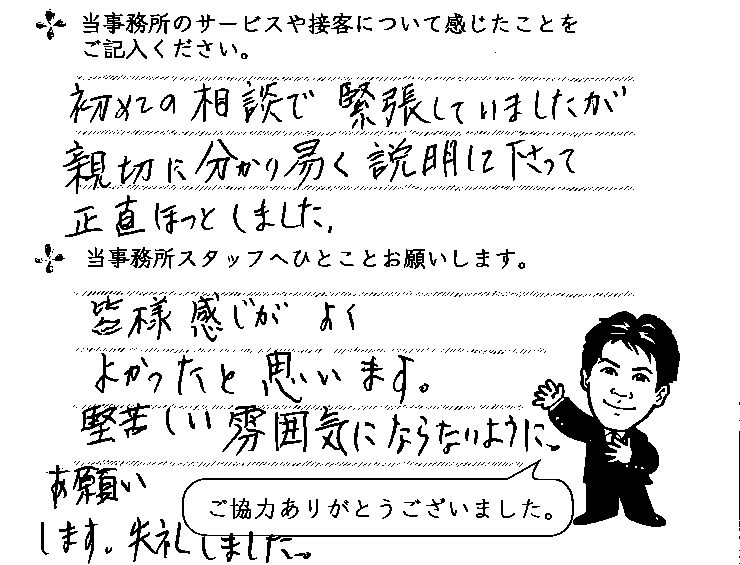 当事務所のサービスや接客について感じたことを
ご記入ください。
初めての相談で緊張していましたが
親切に分かり易く説明して下さって
正直ほっとしました。
当事務所スタッフへひとことお願いします。
皆様感じが よく
よかったと思います。
堅苦しい雰囲気にならないように。
お願い
します。失礼しました。
ご協力ありがとうございました。